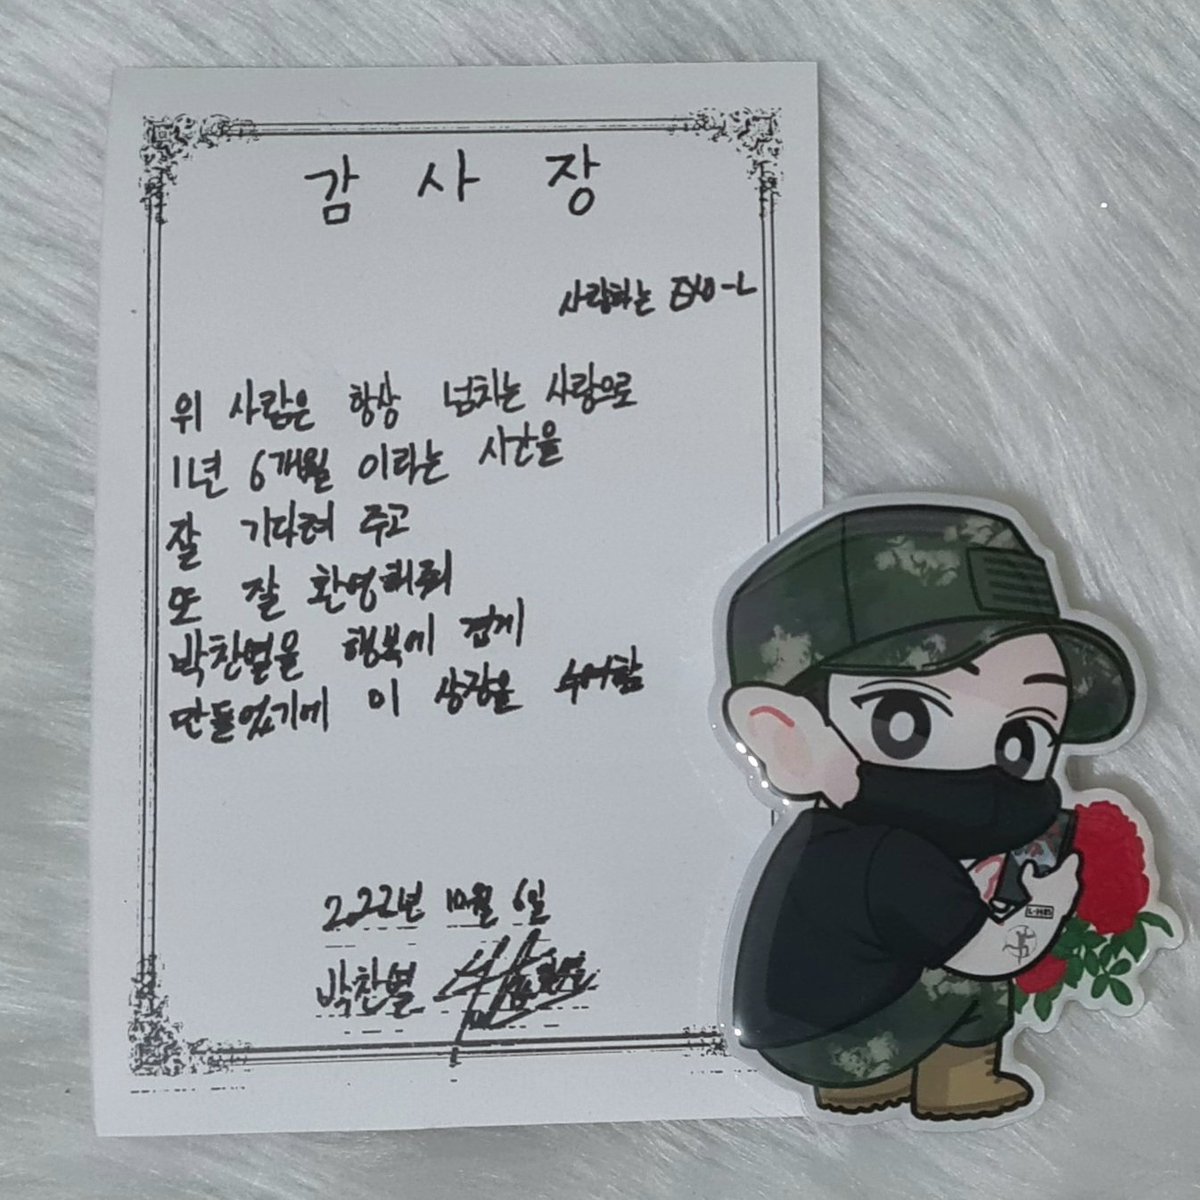 감 사 장
사랑하는 EXO-L
위 사람은 항상 넘치는 사랑으로
1년 6개월 이라는 시간을
잘 기다려 주고
또 잘 환영해줘
박찬열을 행복에 겹게
만들었기에 이 상장을 수여함
2022년 10월 6일
박찬열
L-1485